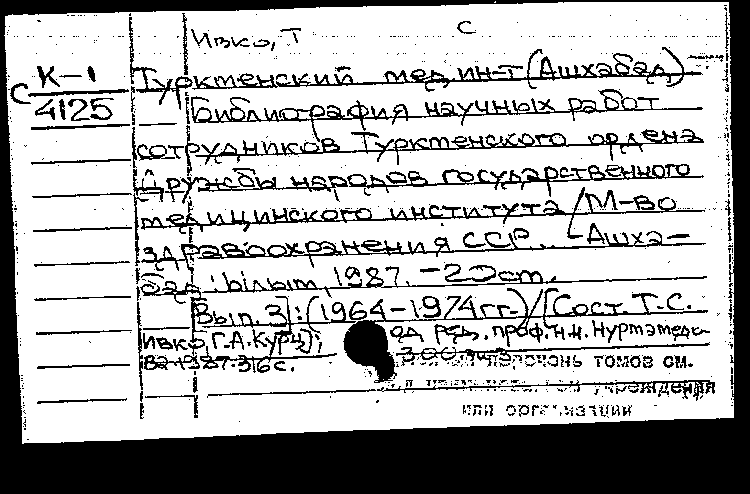 Ивко, Т С
С К-1 Туркменский мед. ин-т (Ашхабад)
4125 Библиография научных работ
сотрудников Туркменского ордена
Дружбы народов государственного
медицинского института / М-во
здравоохранения ССР. - Ашха-
бад : Ылым, 1987. -
Вып. 3] : (1964-1974 гг.) / [Сост. Т.С.
Ивко, Г.А. Курц]; ред. проф. Н.Н.
1987. 316 с. перечень томов см.
учреждения
или организации